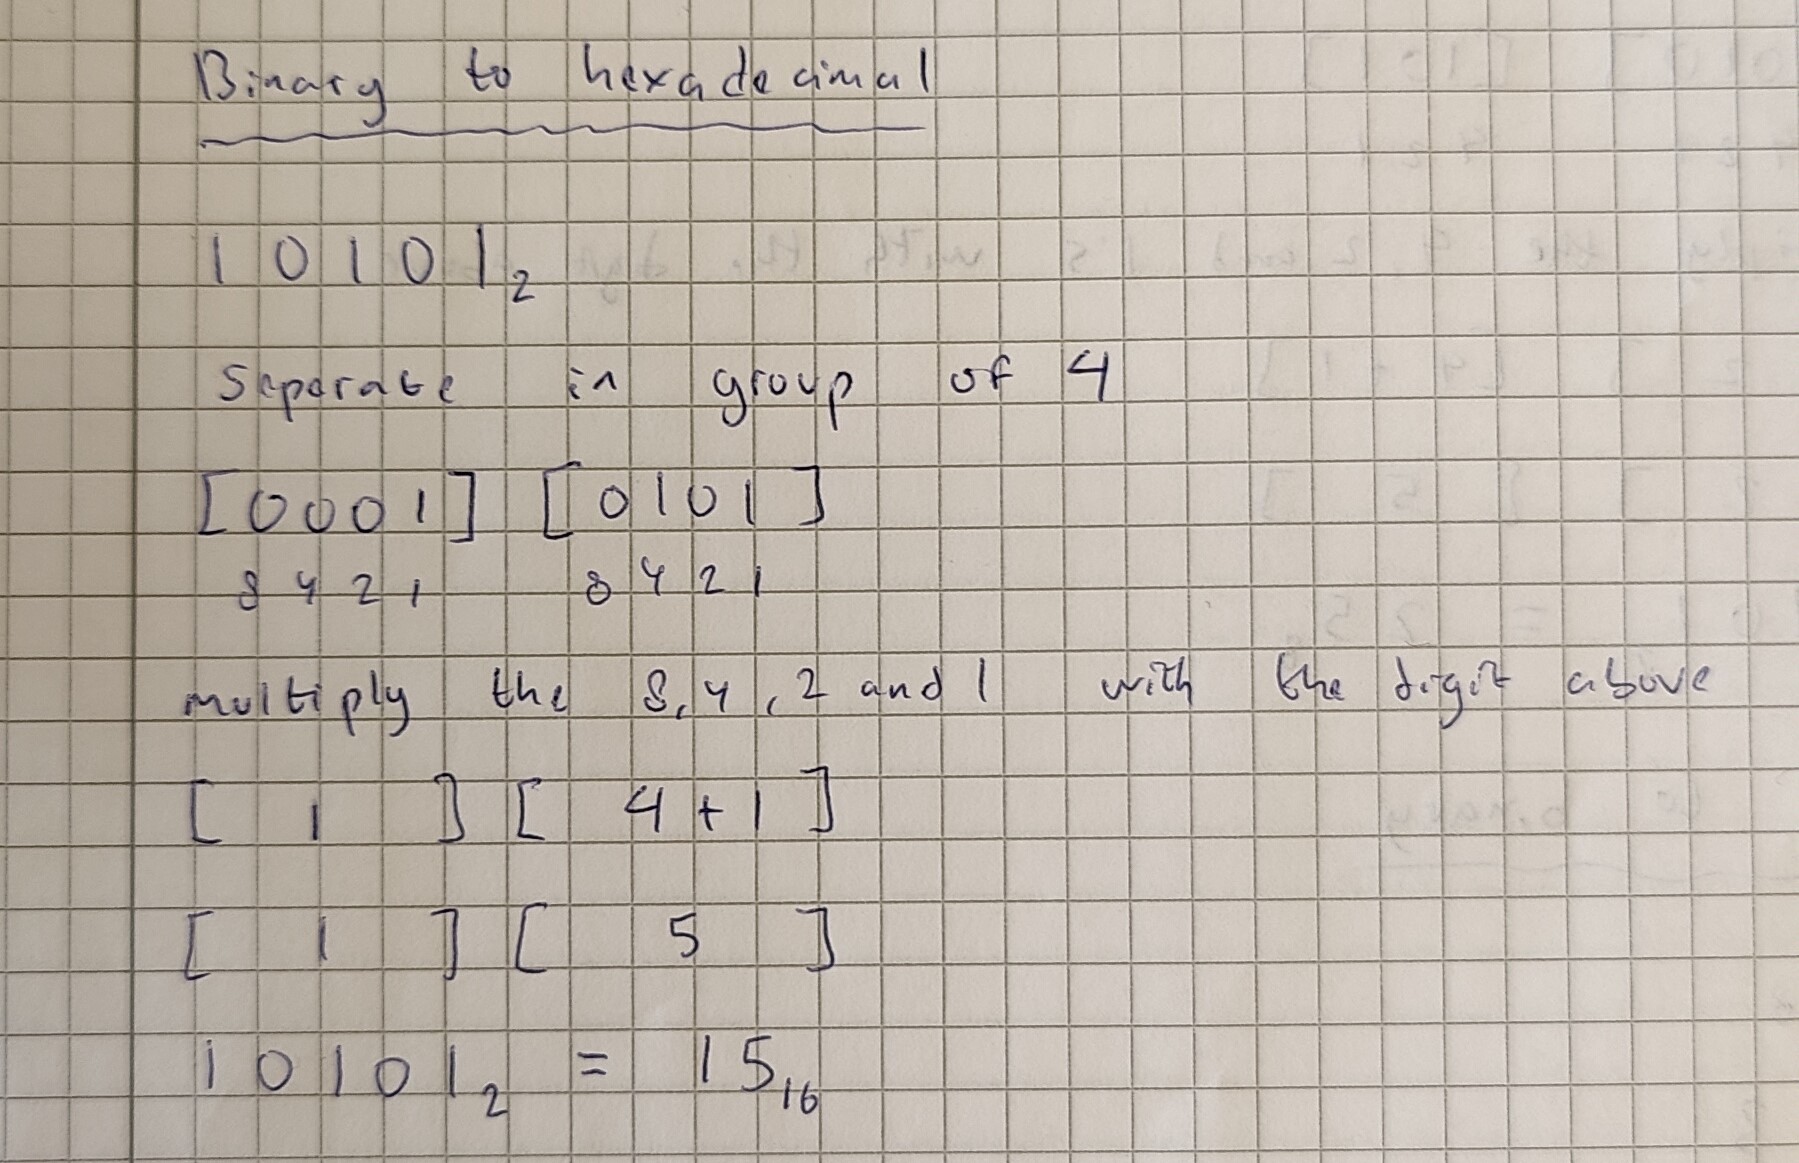 Binary to hexadecimal
10101₂
Separate in group of 4
[0001] [0101]
8 4 2 1 8 4 2 1
multiply the 8, 4, 2 and 1 with the digit above
[ 1 ] [ 4+1 ]
[ 1 ] [ 5 ]
10101₂ = 15₁₆